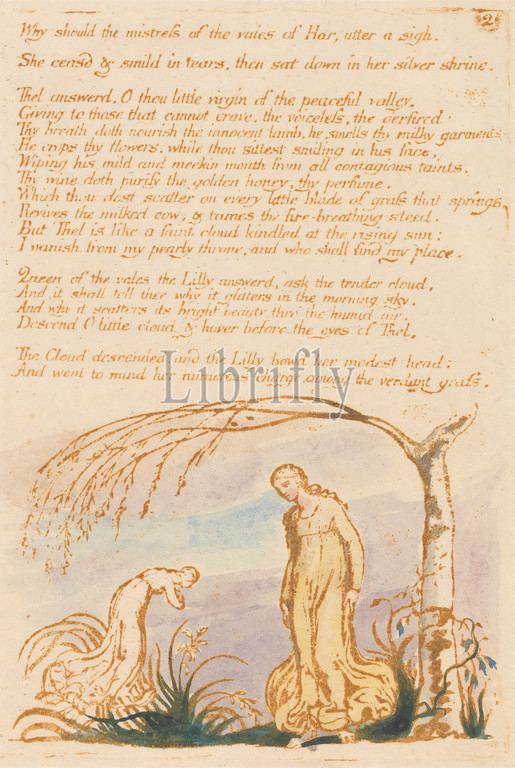 2
Why should the mistress of the vales of Har, utter a sigh.
She ceasd & smild in tears, then sat down in her silver shrine.
Thel answerd, O thou little virgin of the peaceful valley.
Giving to those that cannot crave, the voiceless, the oerfired
Thy breath doth nourish the innocent lamb, he smells thy milky garments,
He crops thy flowers, while thou sittest smiling in his face,
Wiping his mild and meekin mouth from all contagious taints.
Thy wine doth purify the golden honey, thy perfume,
Which thou dost scatter on every little blade of grass that springs
Revives the milked cow, & tames the fire-breathing steed.
But Thel is like a faint cloud kindled at the rising sun:
I vanish from my pearly throne, and who shall find my place.
Queen of the vales the Lilly answerd, ask the tender cloud,
And it shall tell thee why it glitters in the morning sky,
And why it scatters its bright beauty thro the humid air.
Descend O little cloud & hover before the eyes of Thel.
The Cloud descended, and the Lilly bowd her modest head:
And went to mind her numerous charge among the verdant grass.
Librifly